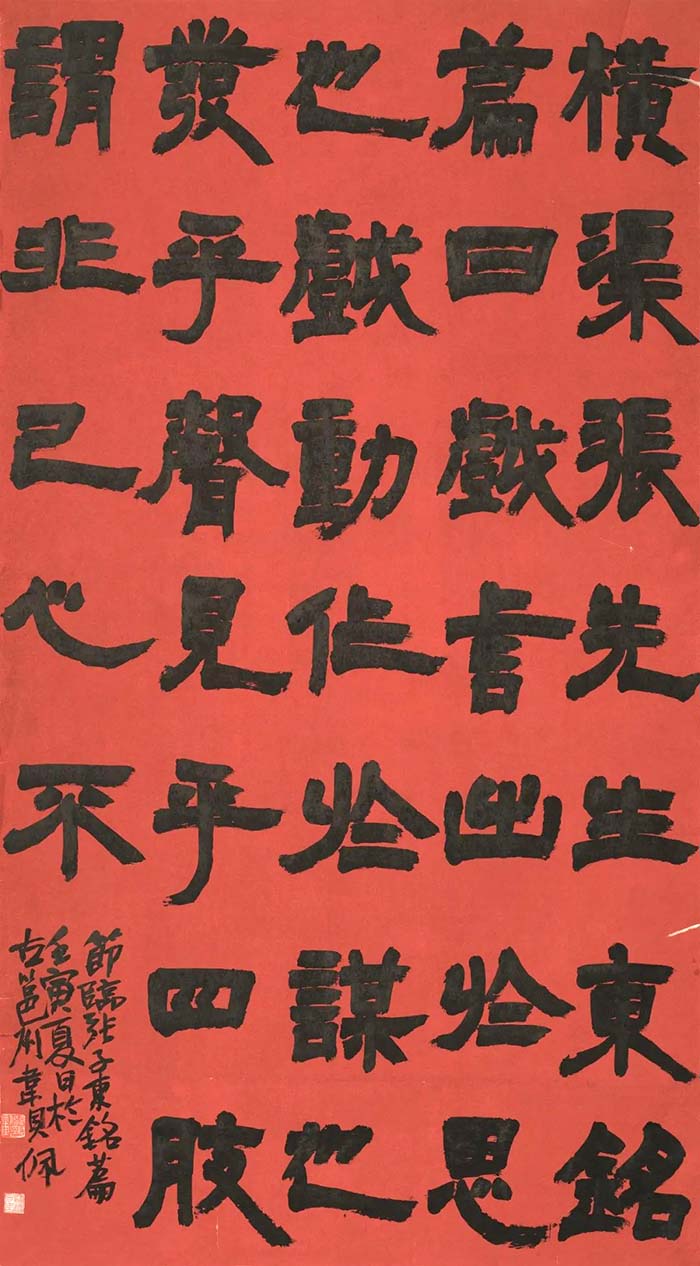 橫渠張先生東銘
篇曰戲言出於思
也戲動作於謀也
發乎聲見乎四肢
謂非己心不
節臨張子東銘篇
壬寅夏日於
古邕州韋貝佩